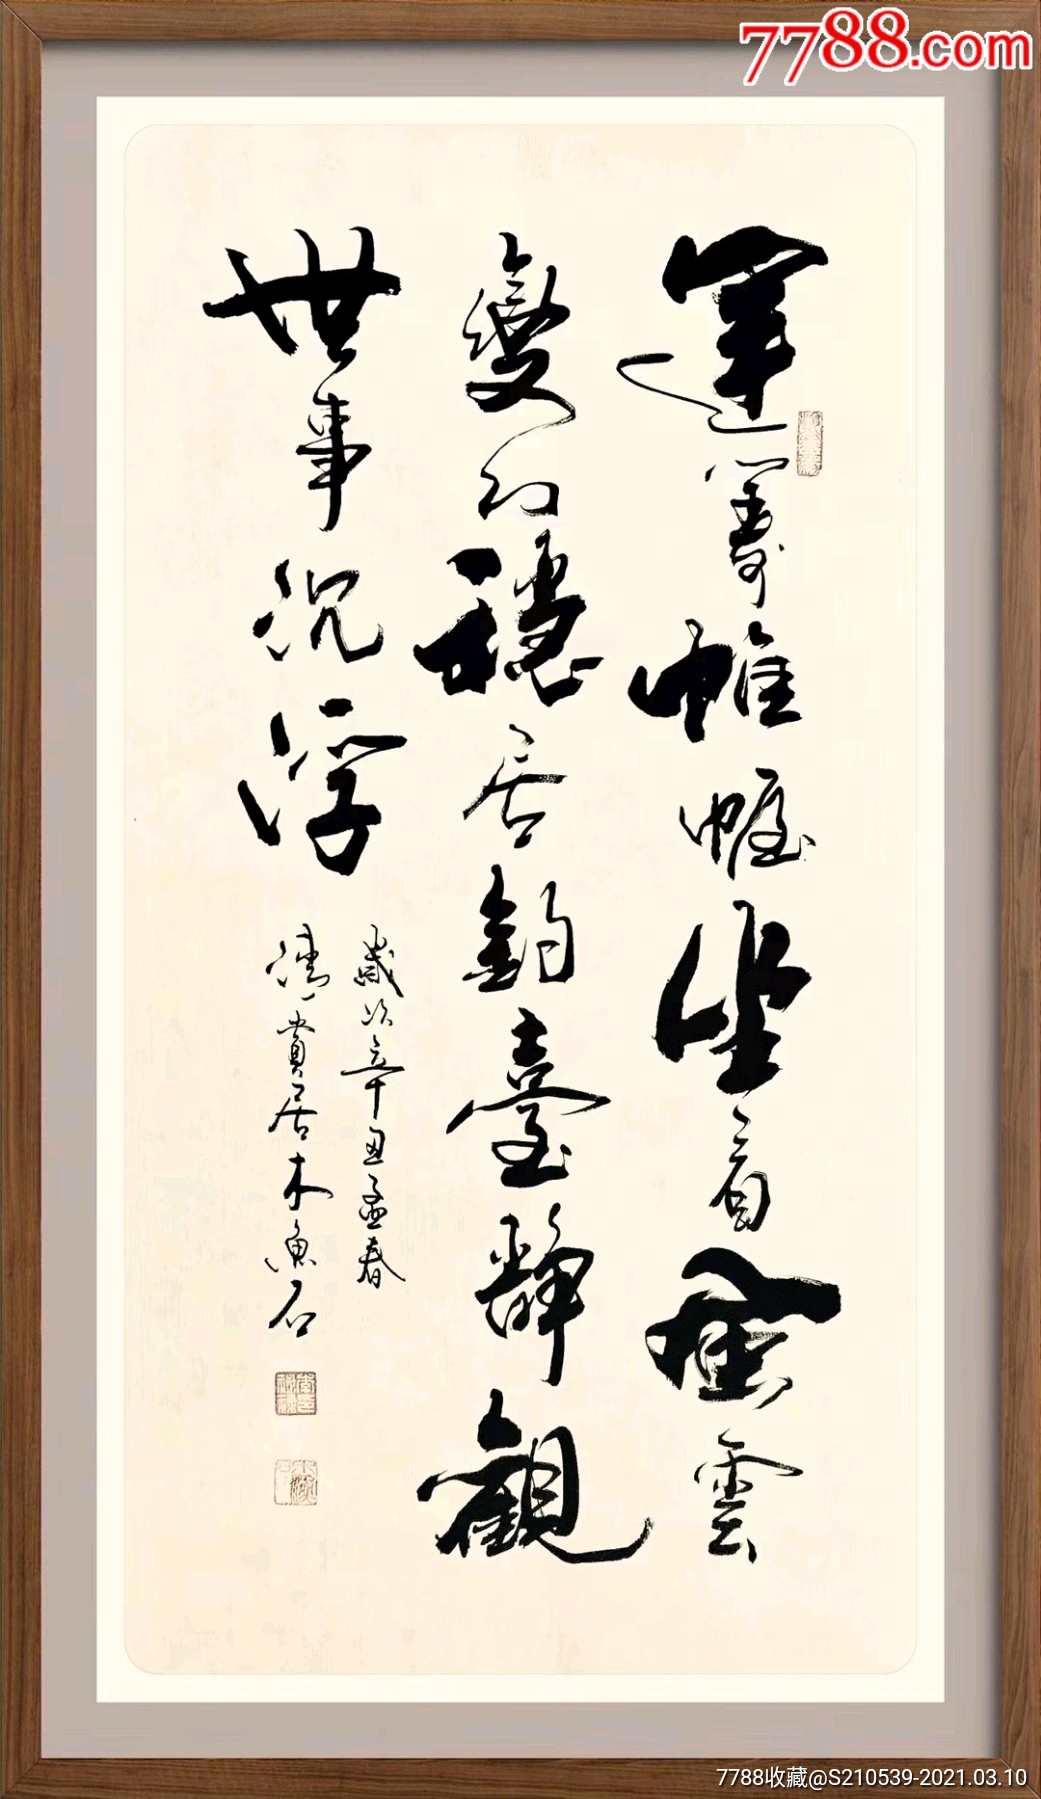 7788.com
運籌帷幄坐看風雲
變幻穩居釣臺靜觀
世事沉浮
歲次辛丑孟春
清賞居木魚石
7788收藏@S210539-2021.03.10